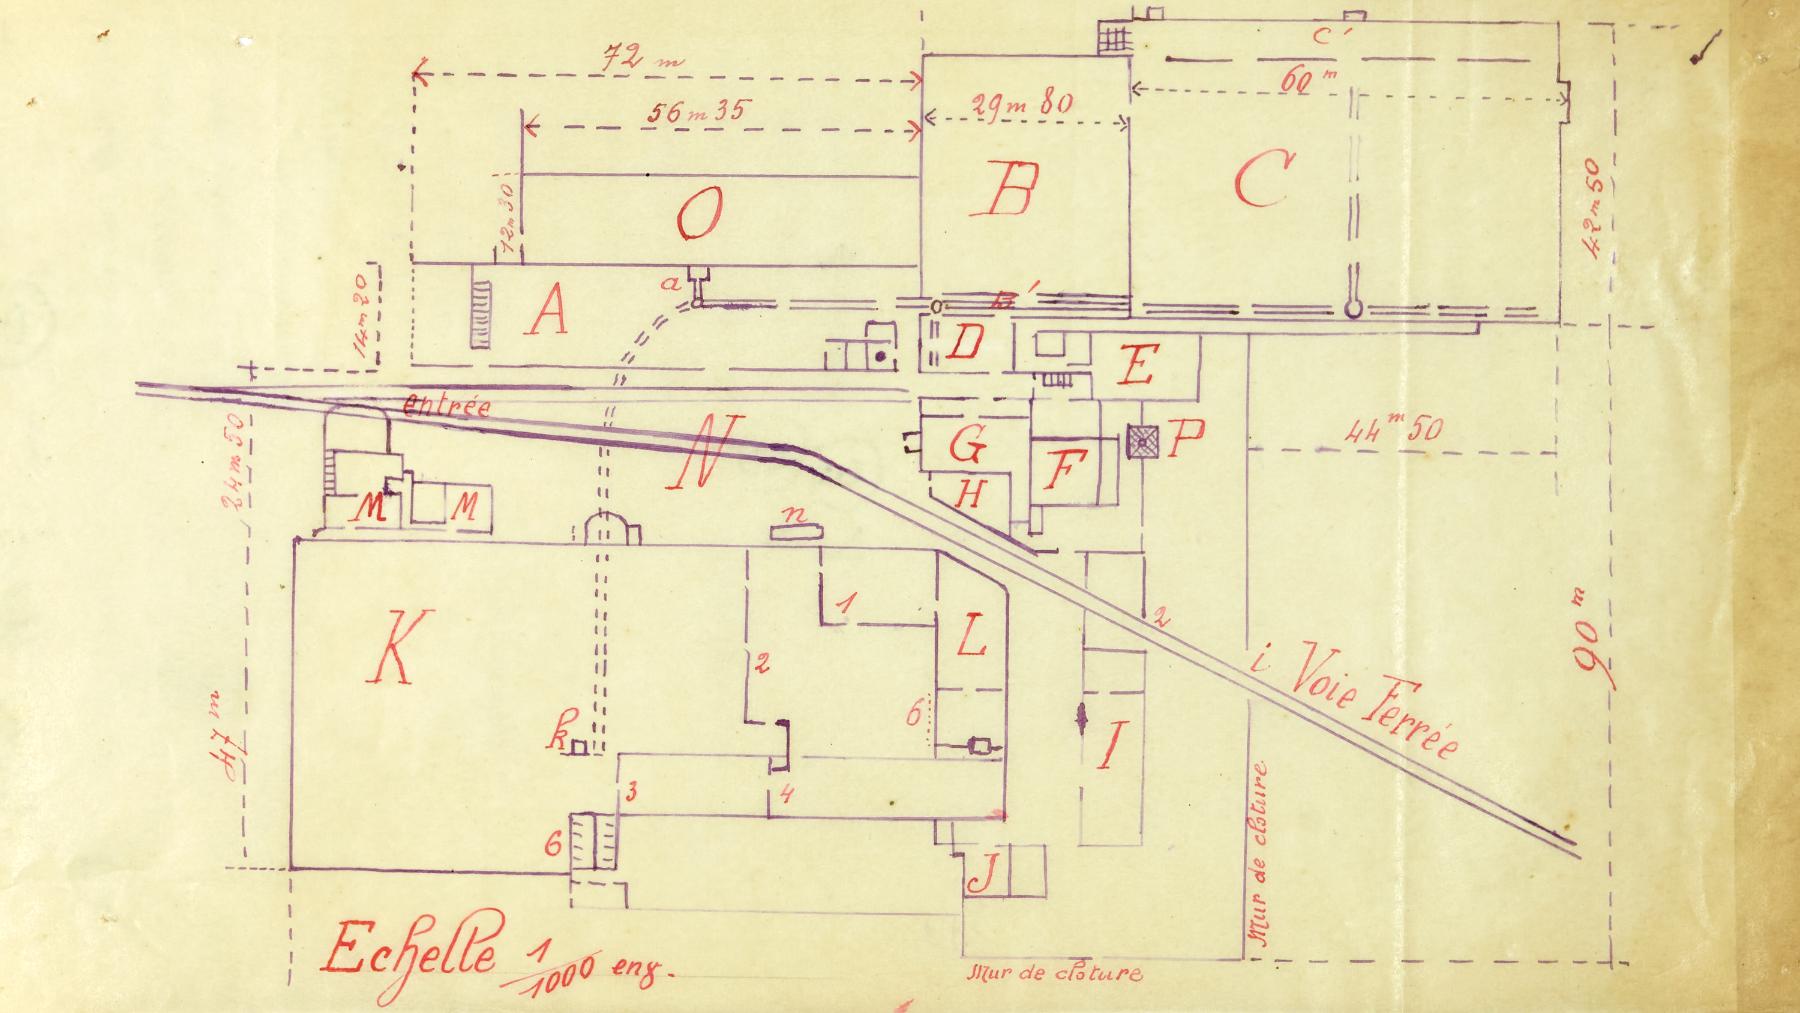 C'
72 m
60 m
56 m 35
29 m 80
42 m 50
12 m 30
O
B
C
14 m 20
A
a
B'
D
E
entrée
24 m 50
N
G
P
44 m 50
F
H
M
M
n
1
2
K
2
L
i Voie Ferrée
90 m
47 m
k
6
I
3
4
6
J
Mur de cloture
Echelle 1/1000 env.
Mur de cloture